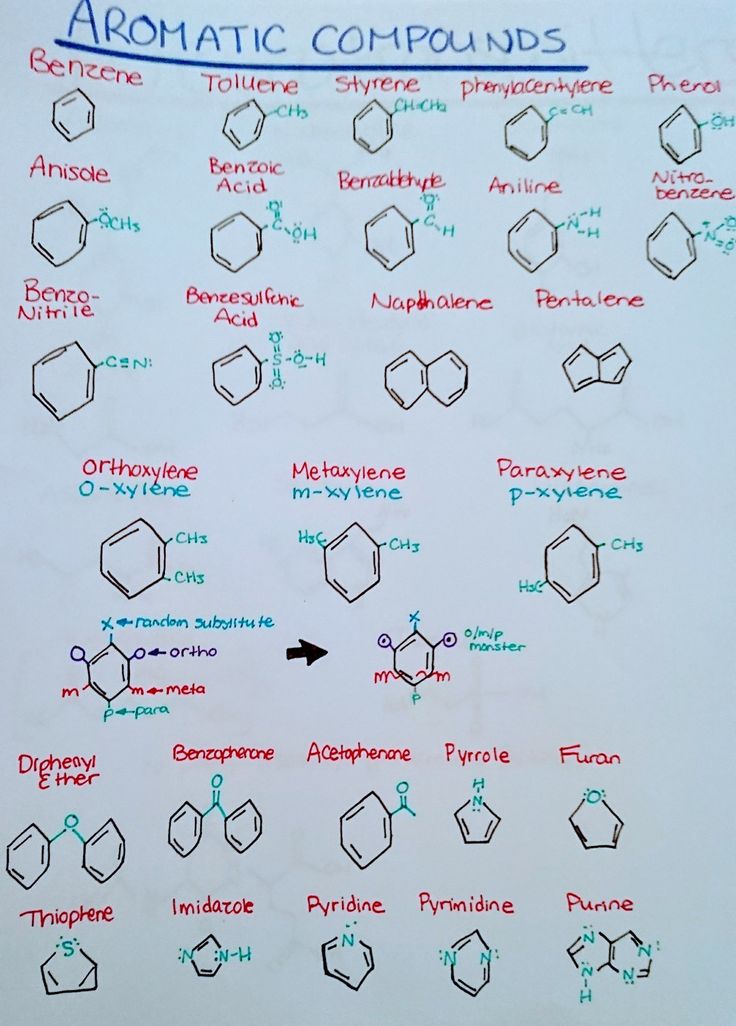 AROMATIC COMPOUNDS
Benzene
Toluene
Styrene
phenylacentylene
Phenol
CH3
CH=CH2
C≡CH
ÖH
Anisole
Benzoic
Acid
Benzaldehyde
Aniline
Nitro-
benzene
ÖCH3
O
C
ÖH
O
C
H
N
H
H
N
O
O
Benzo-
Nitrile
Benzesulfonic
Acid
Napthalene
Pentalene
C≡N:
O
S-O-H
O
Orthoxylene
O-xylene
Metaxylene
m-xylene
Paraxylene
p-xylene
CH3
CH3
H3C
CH3
CH3
H3C
X ← random substitute
O
O ← ortho
m
m ← meta
P ← para
X
o/m/p
monster
m
m
P
Diphenyl
Ether
Benzophenone
Acetophenone
Pyrrole
Furan
O
O
O
H
N
O
Thiophene
Imidazole
Pyridine
Pyrimidine
Purine
S
:N
N-H
N
N
N
N
N:
N
H
N